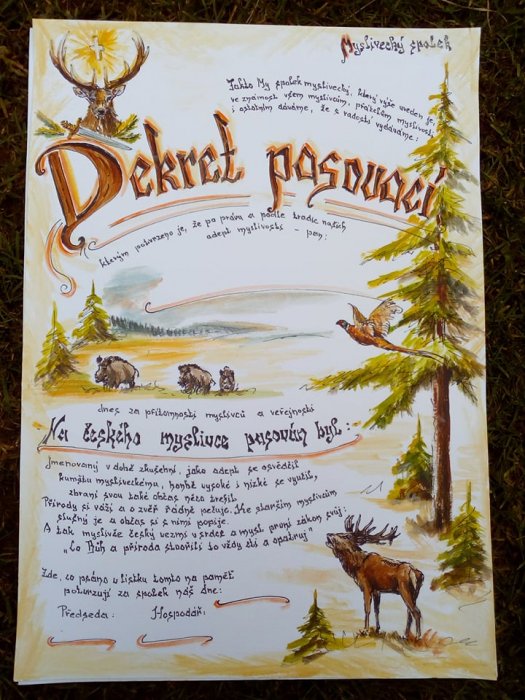 Myslivecký spolek
Takto My spolek myslivecký, který výše uveden je,
ve známost všem myslivcům, přátelům myslivosti
i ostatním dáváme, že s radostí vydáváme:
Dekret pasovací
kterým potvrzeno je, že po právu a podle tradic našich
adept myslivosti - pan:
dnes za přítomnosti myslivců a veřejnosti
Na českého myslivce pasován byl:
Jmenovaný v době zkušební, jako adept se osvědčil
kumštu mysliveckému, honbě vysoké i nízké se vyučil,
zbraní svou také občas něco trefil.
Přírody si váží a o zvěř řádně pečuje. Ke starším myslivcům
slušný je a občas si s nimi popije.
A tak myslivče český vezmi v srdce a mysl první zákon svůj:
„Co Bůh a příroda stvořili to vždy cti a opatruj"
Zde, co psáno v lístku tomto na paměť
potvrzují za spolek náš dne:
Předseda: Hospodář: